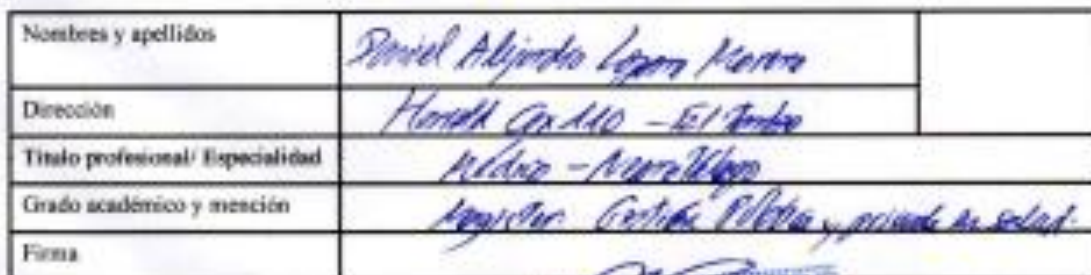 Nombres y apellidos Daniel Alejandro
Dirección - El Tambo
Título profesional/ Especialidad Médico -
Grado académico y mención Magister Gestión Pública y privada en salud.
Firma